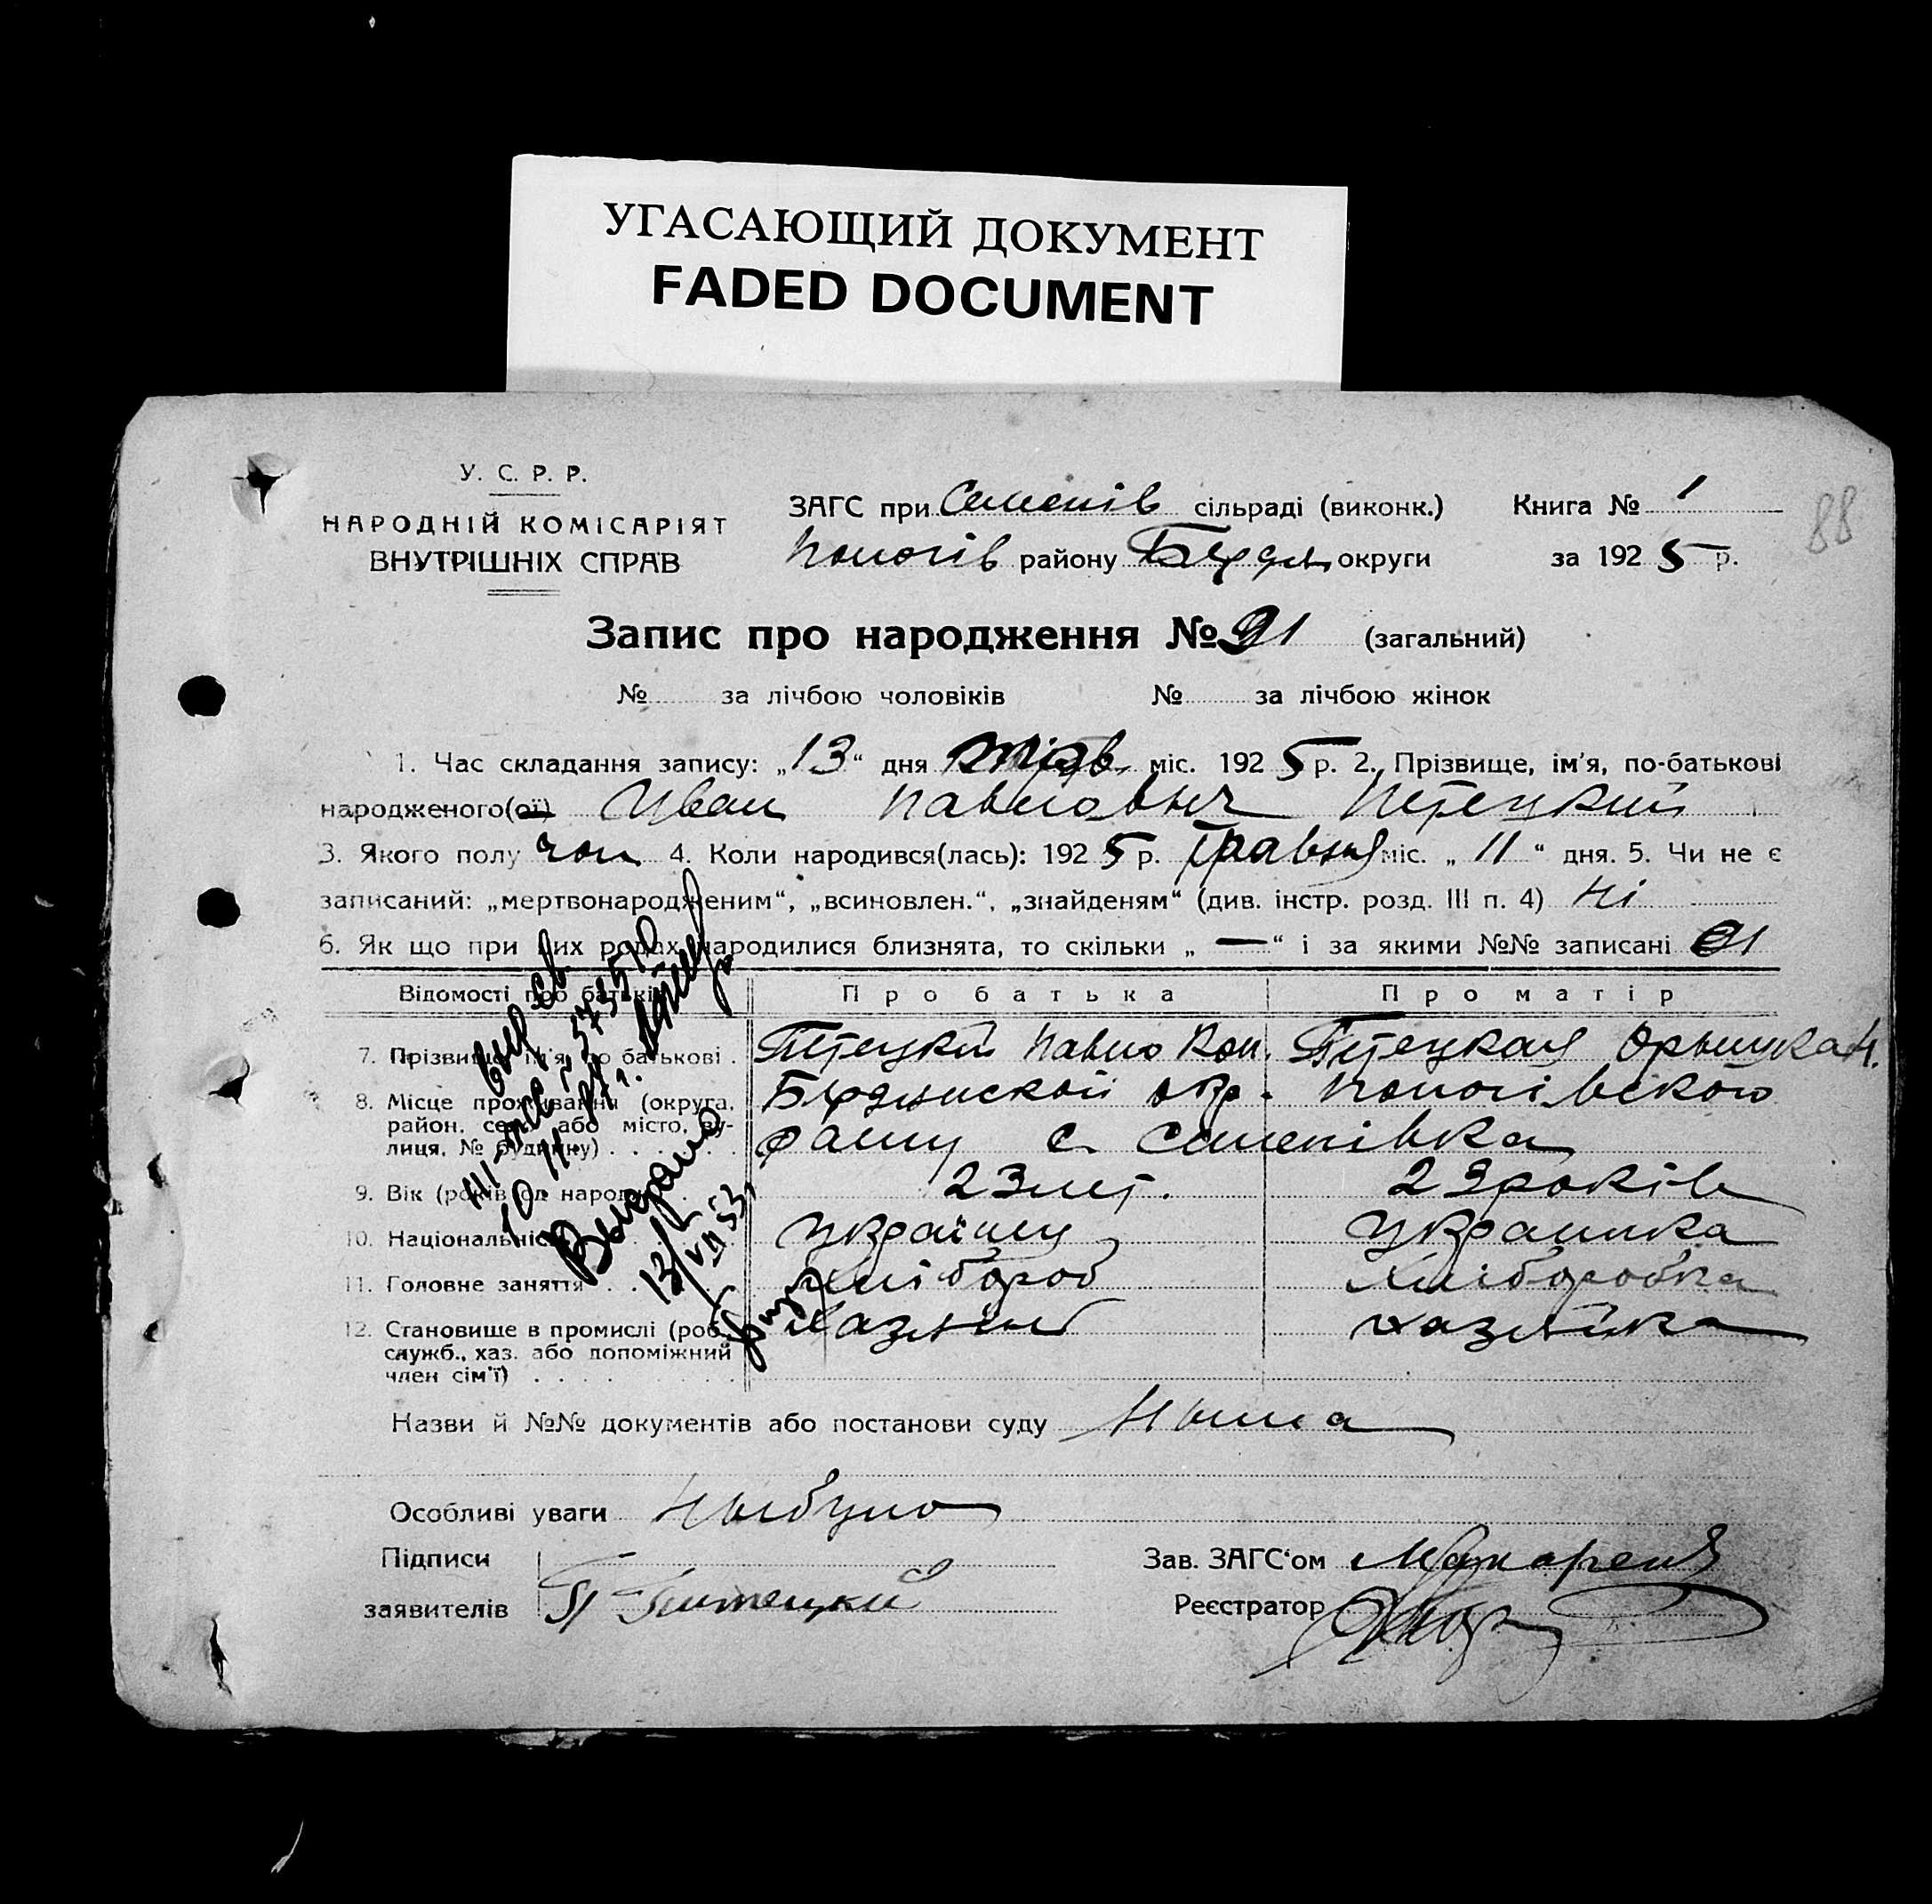 УГАСАЮЩИЙ ДОКУМЕНТ
FADED DOCUMENT
У. С. Р. Р.
НАРОДНІЙ КОМІСАРІЯТ
ВНУТРІШНІХ СПРАВ
ЗАГС при Семенів сільраді (виконк.) Книга № 1
Пологів району Бердян округи за 1925 р.
88
Запис про народження № 91 (загальний)
№ за лічбою чоловіків № за лічбою жінок
1. Час складання запису: „13“ дня міс. 1925 р. 2. Прізвище, ім'я, по-батькові
народженого(ої) Иван Павлович Петецкий
3. Якого полу чол 4. Коли народився(лась): 1925 р. Травня міс. „11“ дня. 5. Чи не є
записаний: „мертвонародженим“, „всиновлен.“, „знайденям“ (див. інстр. розд. III п. 4) Ні
6. Як що при цих родах народилися близнята, то скільки „—“ і за якими №№ записані 91
Відомості про батьків Про батька Про матір
7. Прізвище, ім'я, по батькові Петецкий Павло Кон. Петецкая Орышка Н.
8. Місце проживання (округа, район, село, або місто, ву- лиця, № будинку) Бердянской окр. Пологівского
раину с. Семенівка
9. Вік (років од народж.) 23 лет. 23 років
10. Національність Українец Украинка
11. Головне заняття Хлібороб Хлиборобка
12. Становище в промислі (роб., Хазяин Хазяйка
служб., хаз. або допоміжний
член сім'ї)
Выдано
13/VII 53
Назви й №№ документів або постанови суду Ныма
Особливі уваги Ныбуло
Підписи Зав. ЗАГС'ом Макаренко
заявителів П Питецкий Реєстратор